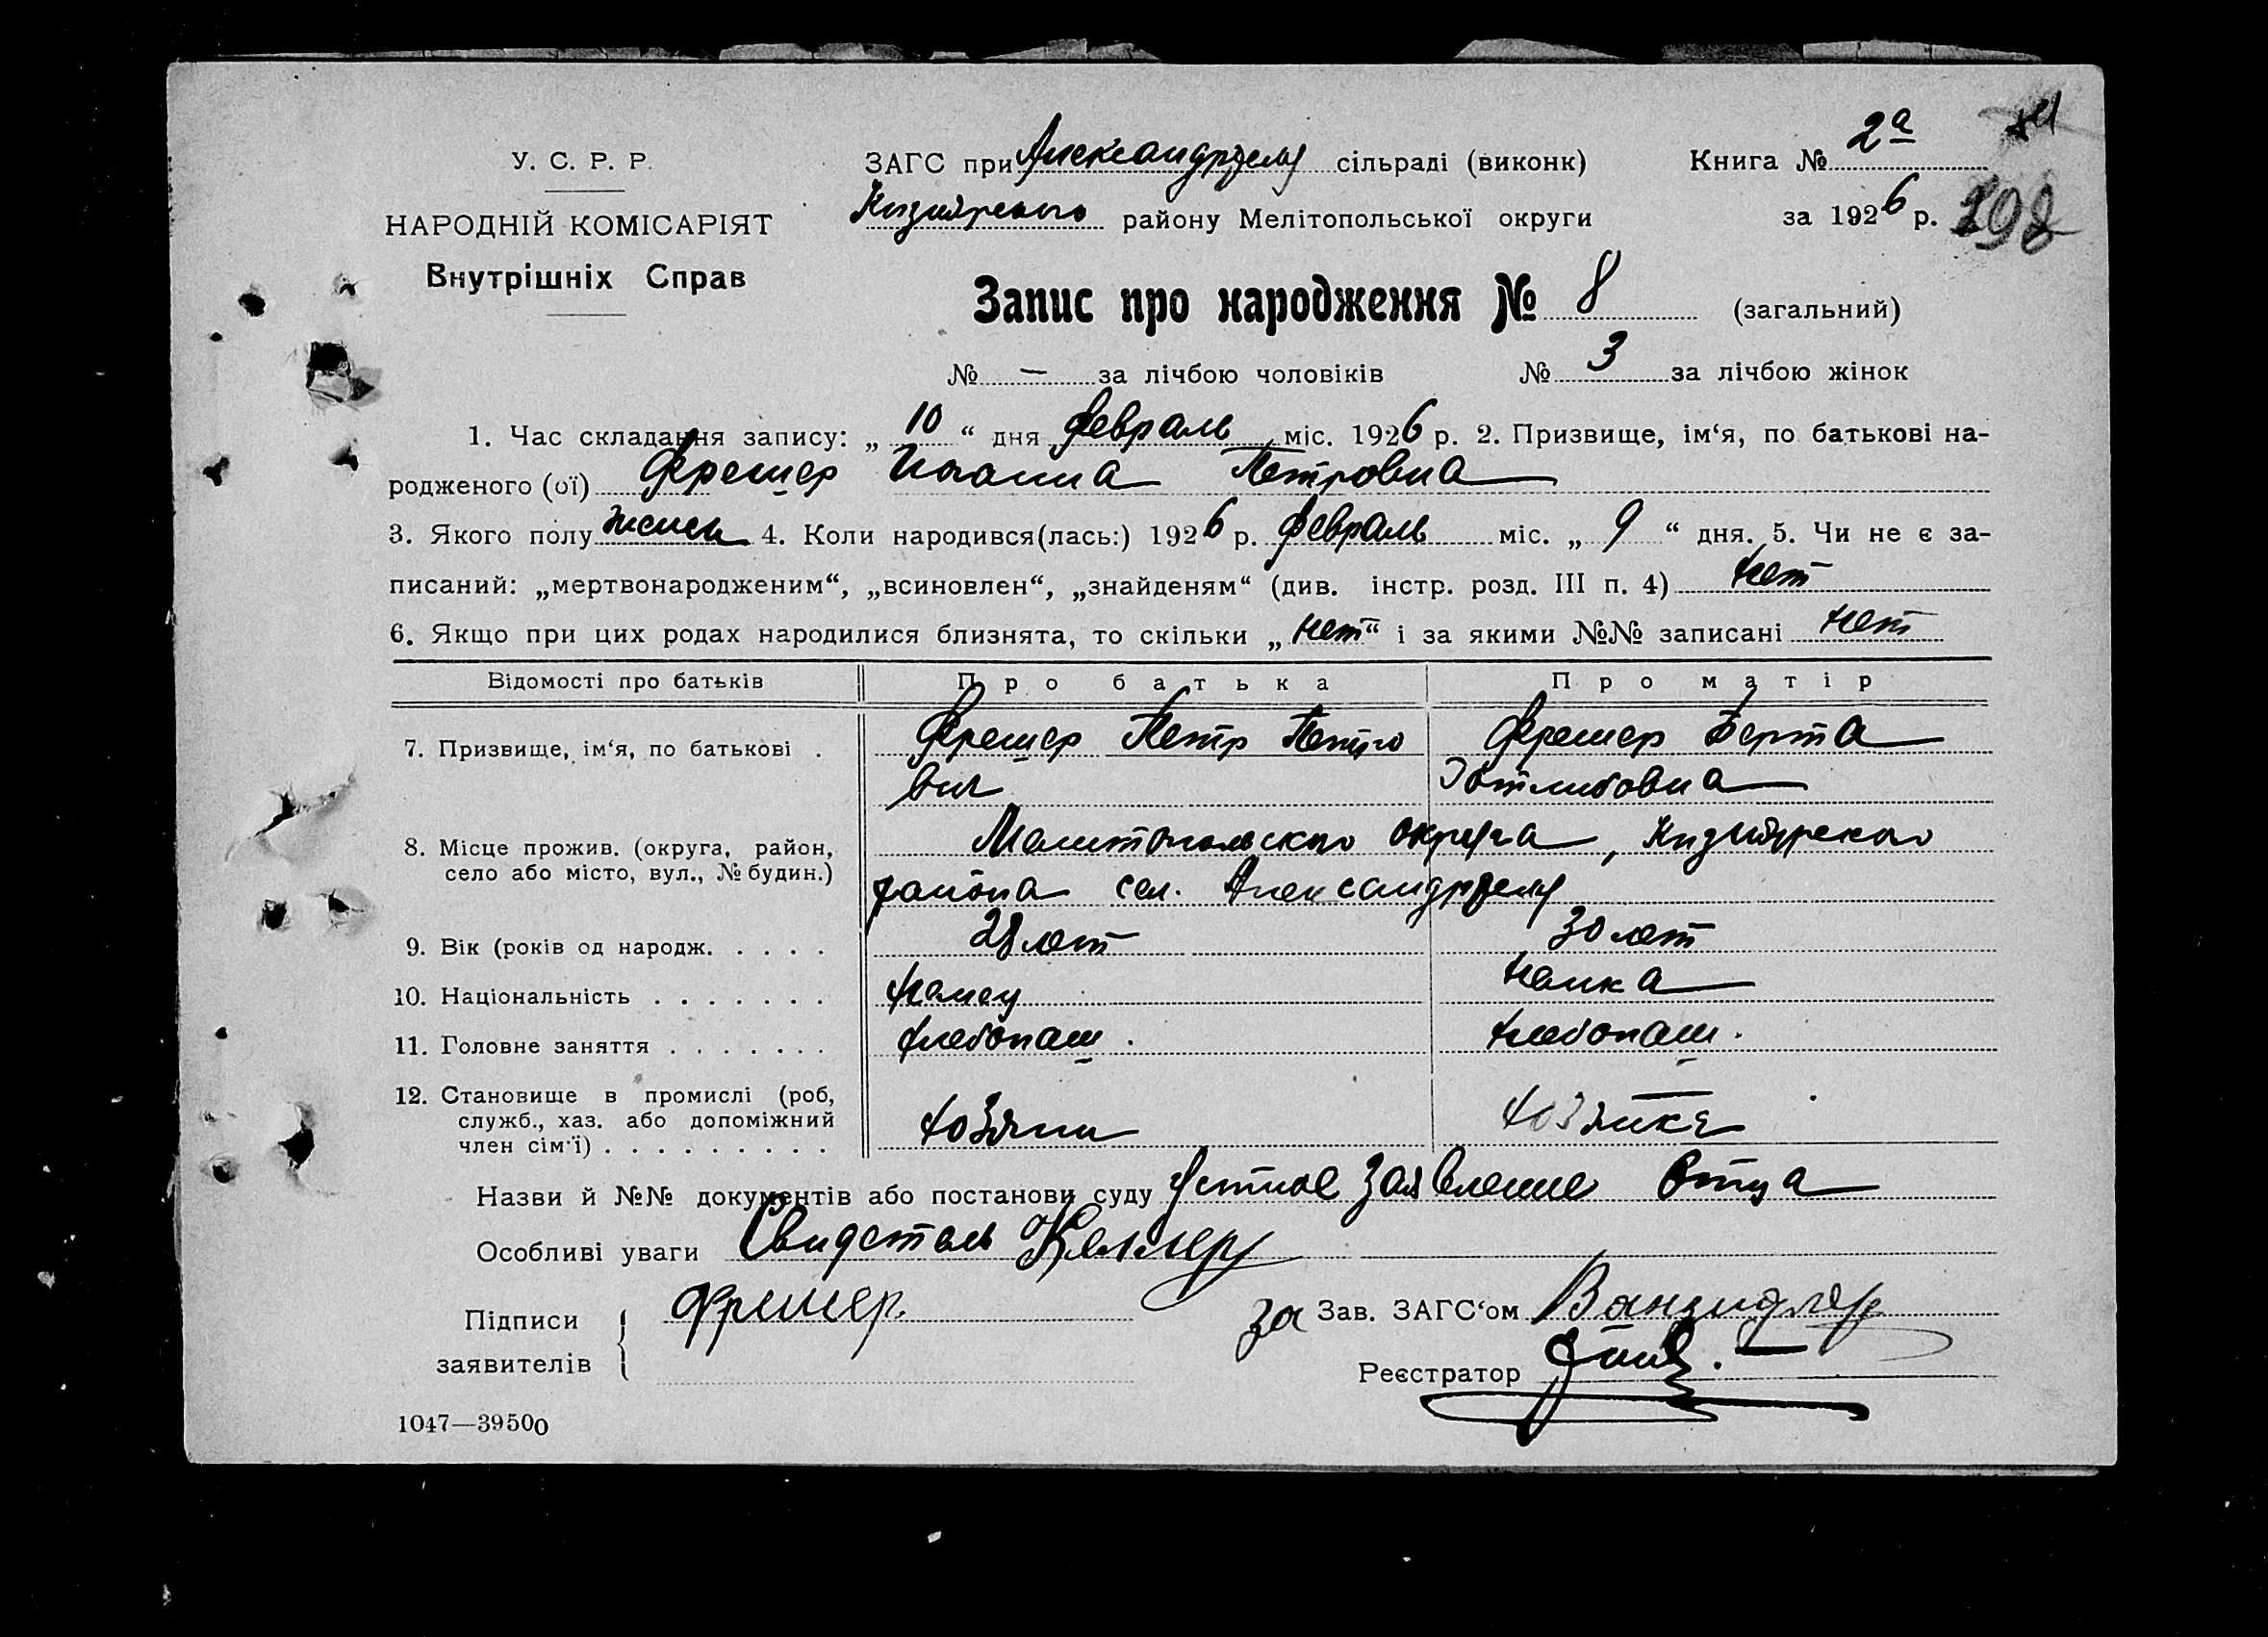 У. С. Р. Р.
НАРОДНІЙ КОМІСАРІЯТ
Внутрішніх Справ
ЗАГС при Александрфельд сільраді (виконк)
Кизиярского району Мелітопольської округи
Книга № 2а
за 1926 р.
292
Запис про народження № 8 (загальний)
№ — за лічбою чоловіків № 3 за лічбою жінок
1. Час складання запису: „ 10 “ дня февраль міс. 1926 р. 2. Призвище, ім‘я, по батькові на-
родженого (ої) Фрешер Иоанна Петровна
3. Якого полу женск 4. Коли народився(лась:) 1926 р. февраль міс. „ 9 “ дня. 5. Чи не є за-
писаний: „мертвонародженим“, „всиновлен“, „знайденям“ (див. інстр. розд. III п. 4) нет
6. Якщо при цих родах народилися близнята, то скільки „ нет “ і за якими №№ записані нет
Відомості про батьків Про батька Про матір
7. Призвище, ім‘я, по батькові . Фрешер Петр Петро Фрешер Берта
вич Готлибовна
8. Місце прожив. (округа, район, Мелитопольского округа, Кизиярского
село або місто, вул., № будин.) района сел. Александрфельд
9. Вік (років од народж. . . . . 28 лет 30 лет
10. Національність . . . . . . . немец немка
11. Головне заняття . . . . . . . хлебопаш. хлебопаш.
12. Становище в промислі (роб,
служб., хаз. або допоміжний
член сім‘ї) . . . . . . . . . хозяин хозяйке
Назви й №№ документів або постанови суду Устное заявление Отца
Особливі уваги Свидетель Келлер
Підписи Фрешер. за Зав. ЗАГС‘ом
заявителів Реєстратор
1047—39500